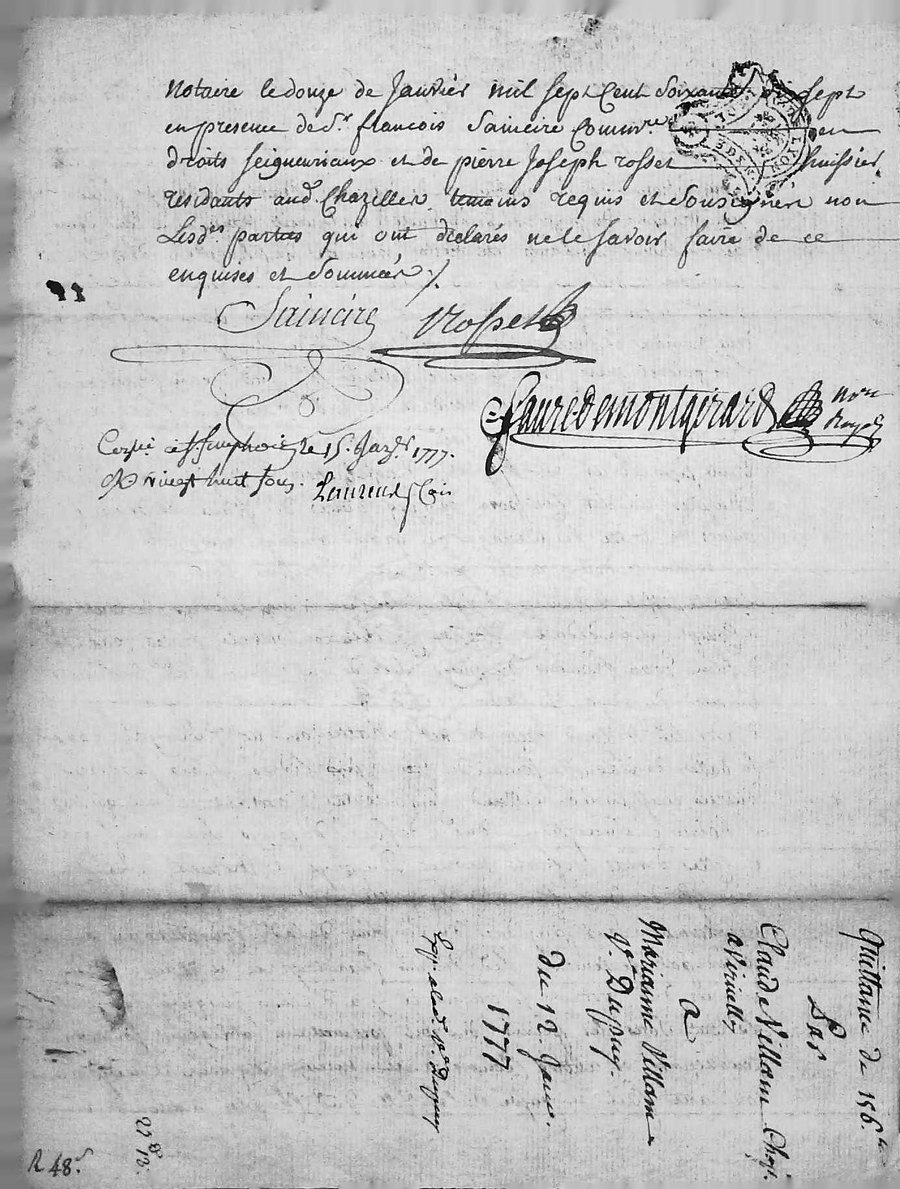 Notaire le douze de Janvier mil sept Cent Soixante et sept
en presence de Sr. françois Saincire Commre. en
droits seigneuriaux et de pierre Joseph rosset huissier
residants aud. Chazelles temoins requis et Soussignés non
Lesdes parties qui ont declarés ne le savoir faire de ce
enquises et Sommées ./.
Saincire Rosset
fauredemontgirard nore
Royal
à St. Simphorien le 15. Janvr. 1777.
vingt huit sous. Laurend
Quittance de 156.
Par
Claude Villam
a
Marianne Villam
ve. Dupuy.
du 12. Janv.
1777
Exp. a lad. ve. Dupuy
R 48s